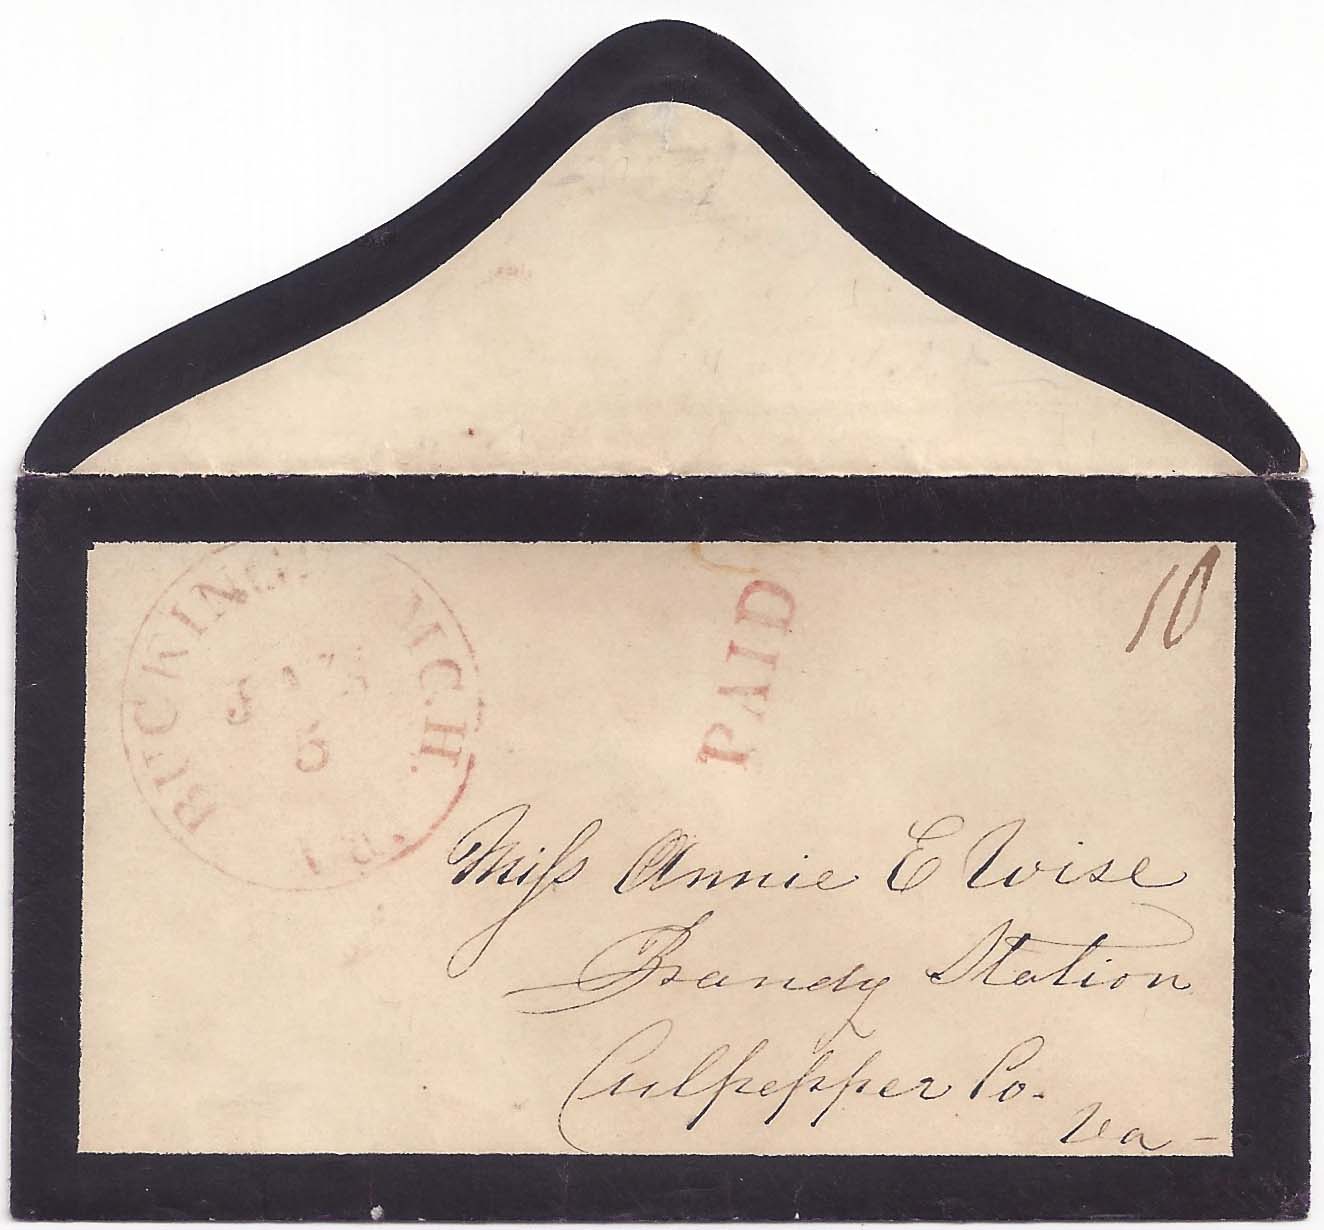 BUCKINGHAM C.H.
JAN
6
Va.
PAID
10
Miss Annie E Wise
Brandy Station
Culpepper Co.
Va -